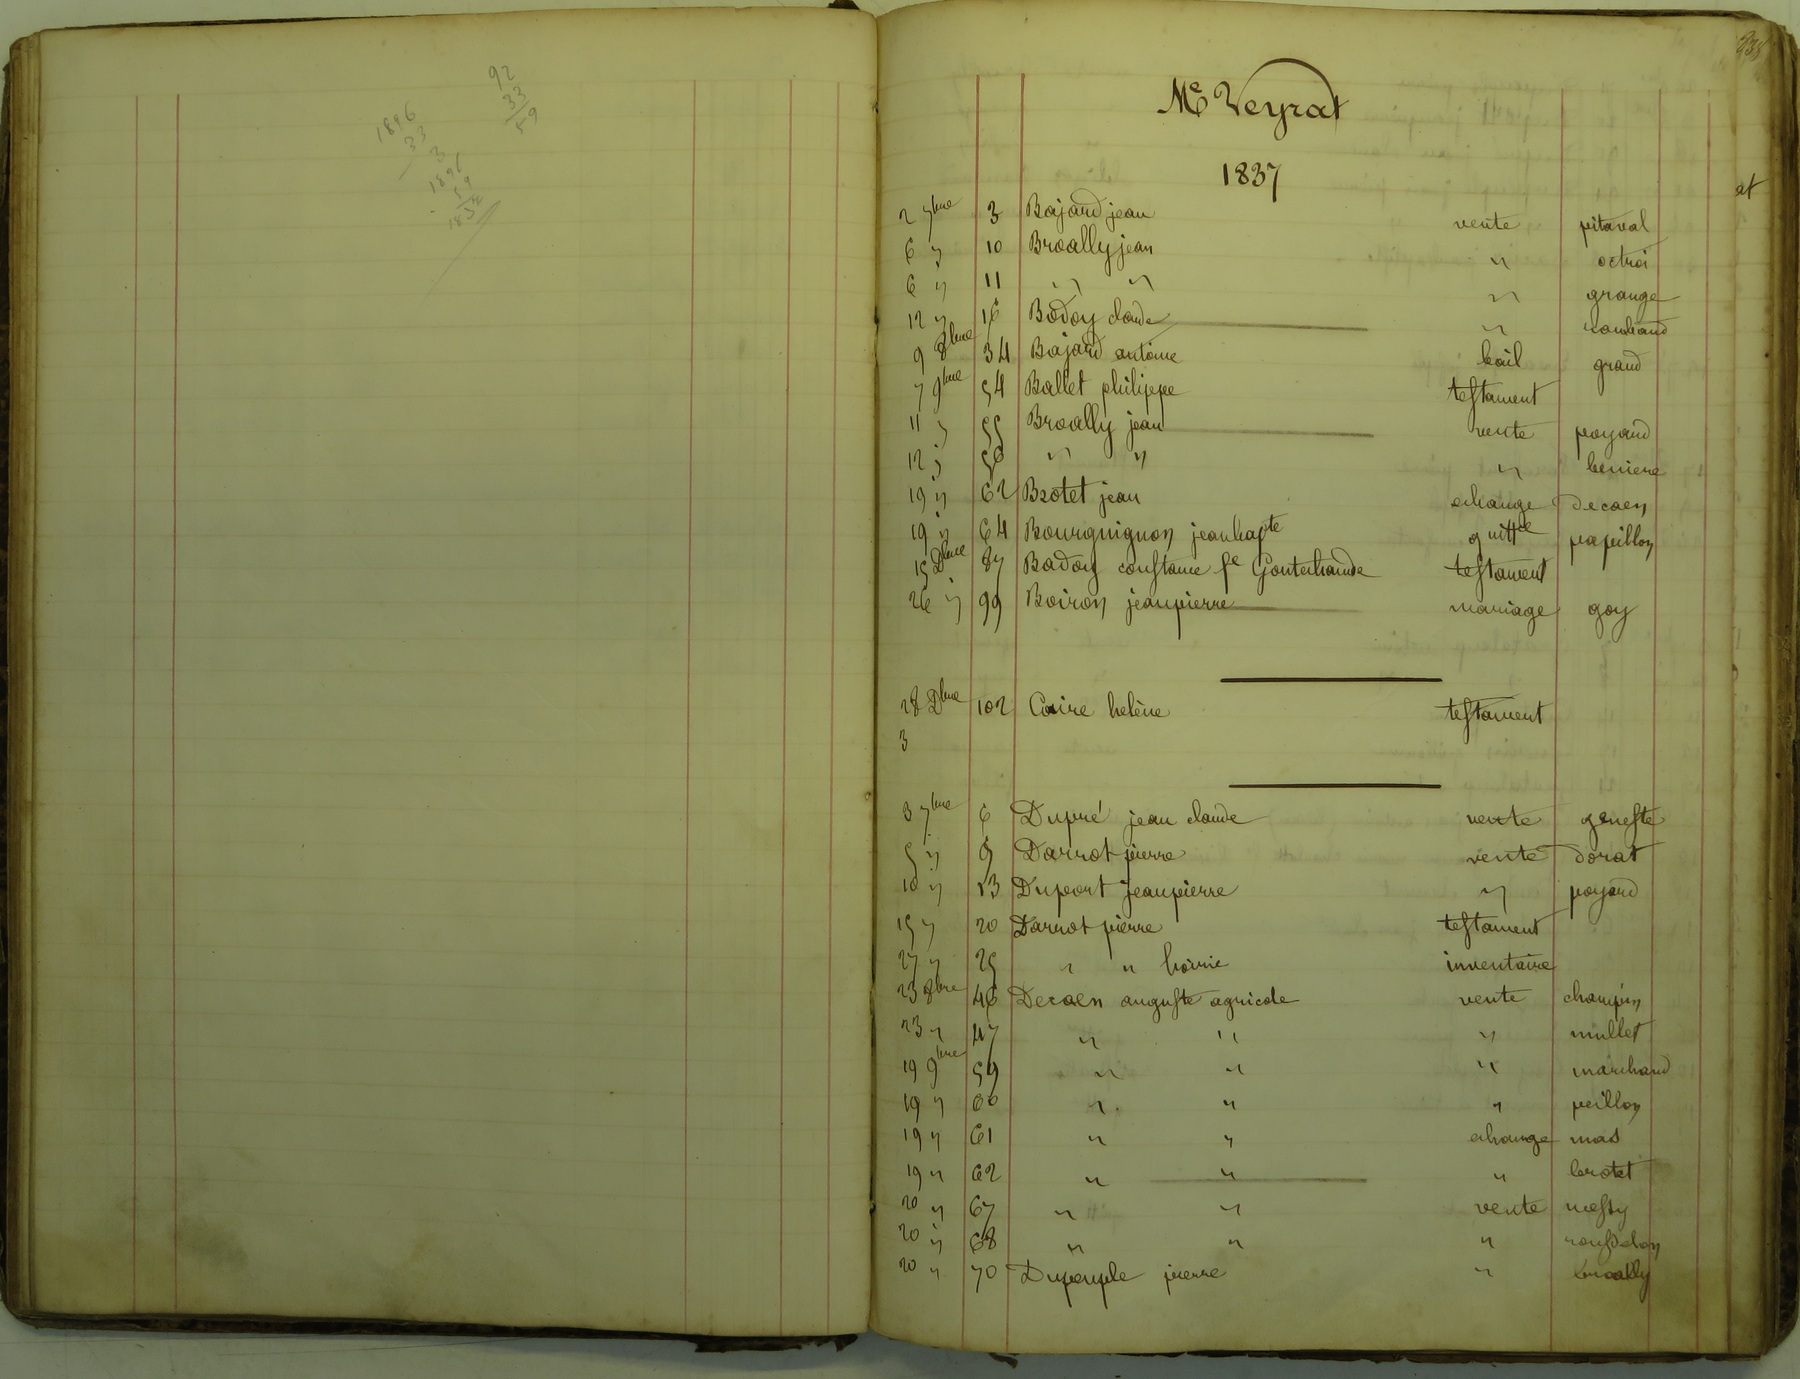 92
33
59
1896
33
3
1896
59
1837
238
Me Veyrat
1837
et
2 7bre 3 Bajard jean vente pitaval
6 " 10 Broally jean " octroi
6 " 11 " " " grange
12 " 16 Badoy claude "
9 8bre 34 Bajard antoine bail grand
7 9bre 54 Ballet philippe testament
11 " 55 Broally jean vente poyard
12 " 56 " " "
19 " 62 Brotet jean echange Decaen
19 " 64 Bourguignon jeanbapte quittce papillon
15 Dbre 87 Badoy constance fe testament
26 " 99 Boiron jeanpierre mariage goy
28 Dbre 102 Caire helène testament
3
3 7bre 6 Dupré jean claude vente geneste
5 " 9 Darnot pierre vente Dorat
10 " 13 Duport jeanpierre " poyard
15 " 20 Darnot pierre testament
27 " 25 " " hoirie inventaire
23 8bre 46 Decaen auguste agricole vente champin
23 " 47 " " " mullet
19 9bre 59 " " " marchand
19 " 60 " " " peillon
19 " 61 " " echange mas
19 " 62 " " " brotet
20 " 67 " " vente
20 " 68 " " "
20 " 70 Dupeuple pierre " broally